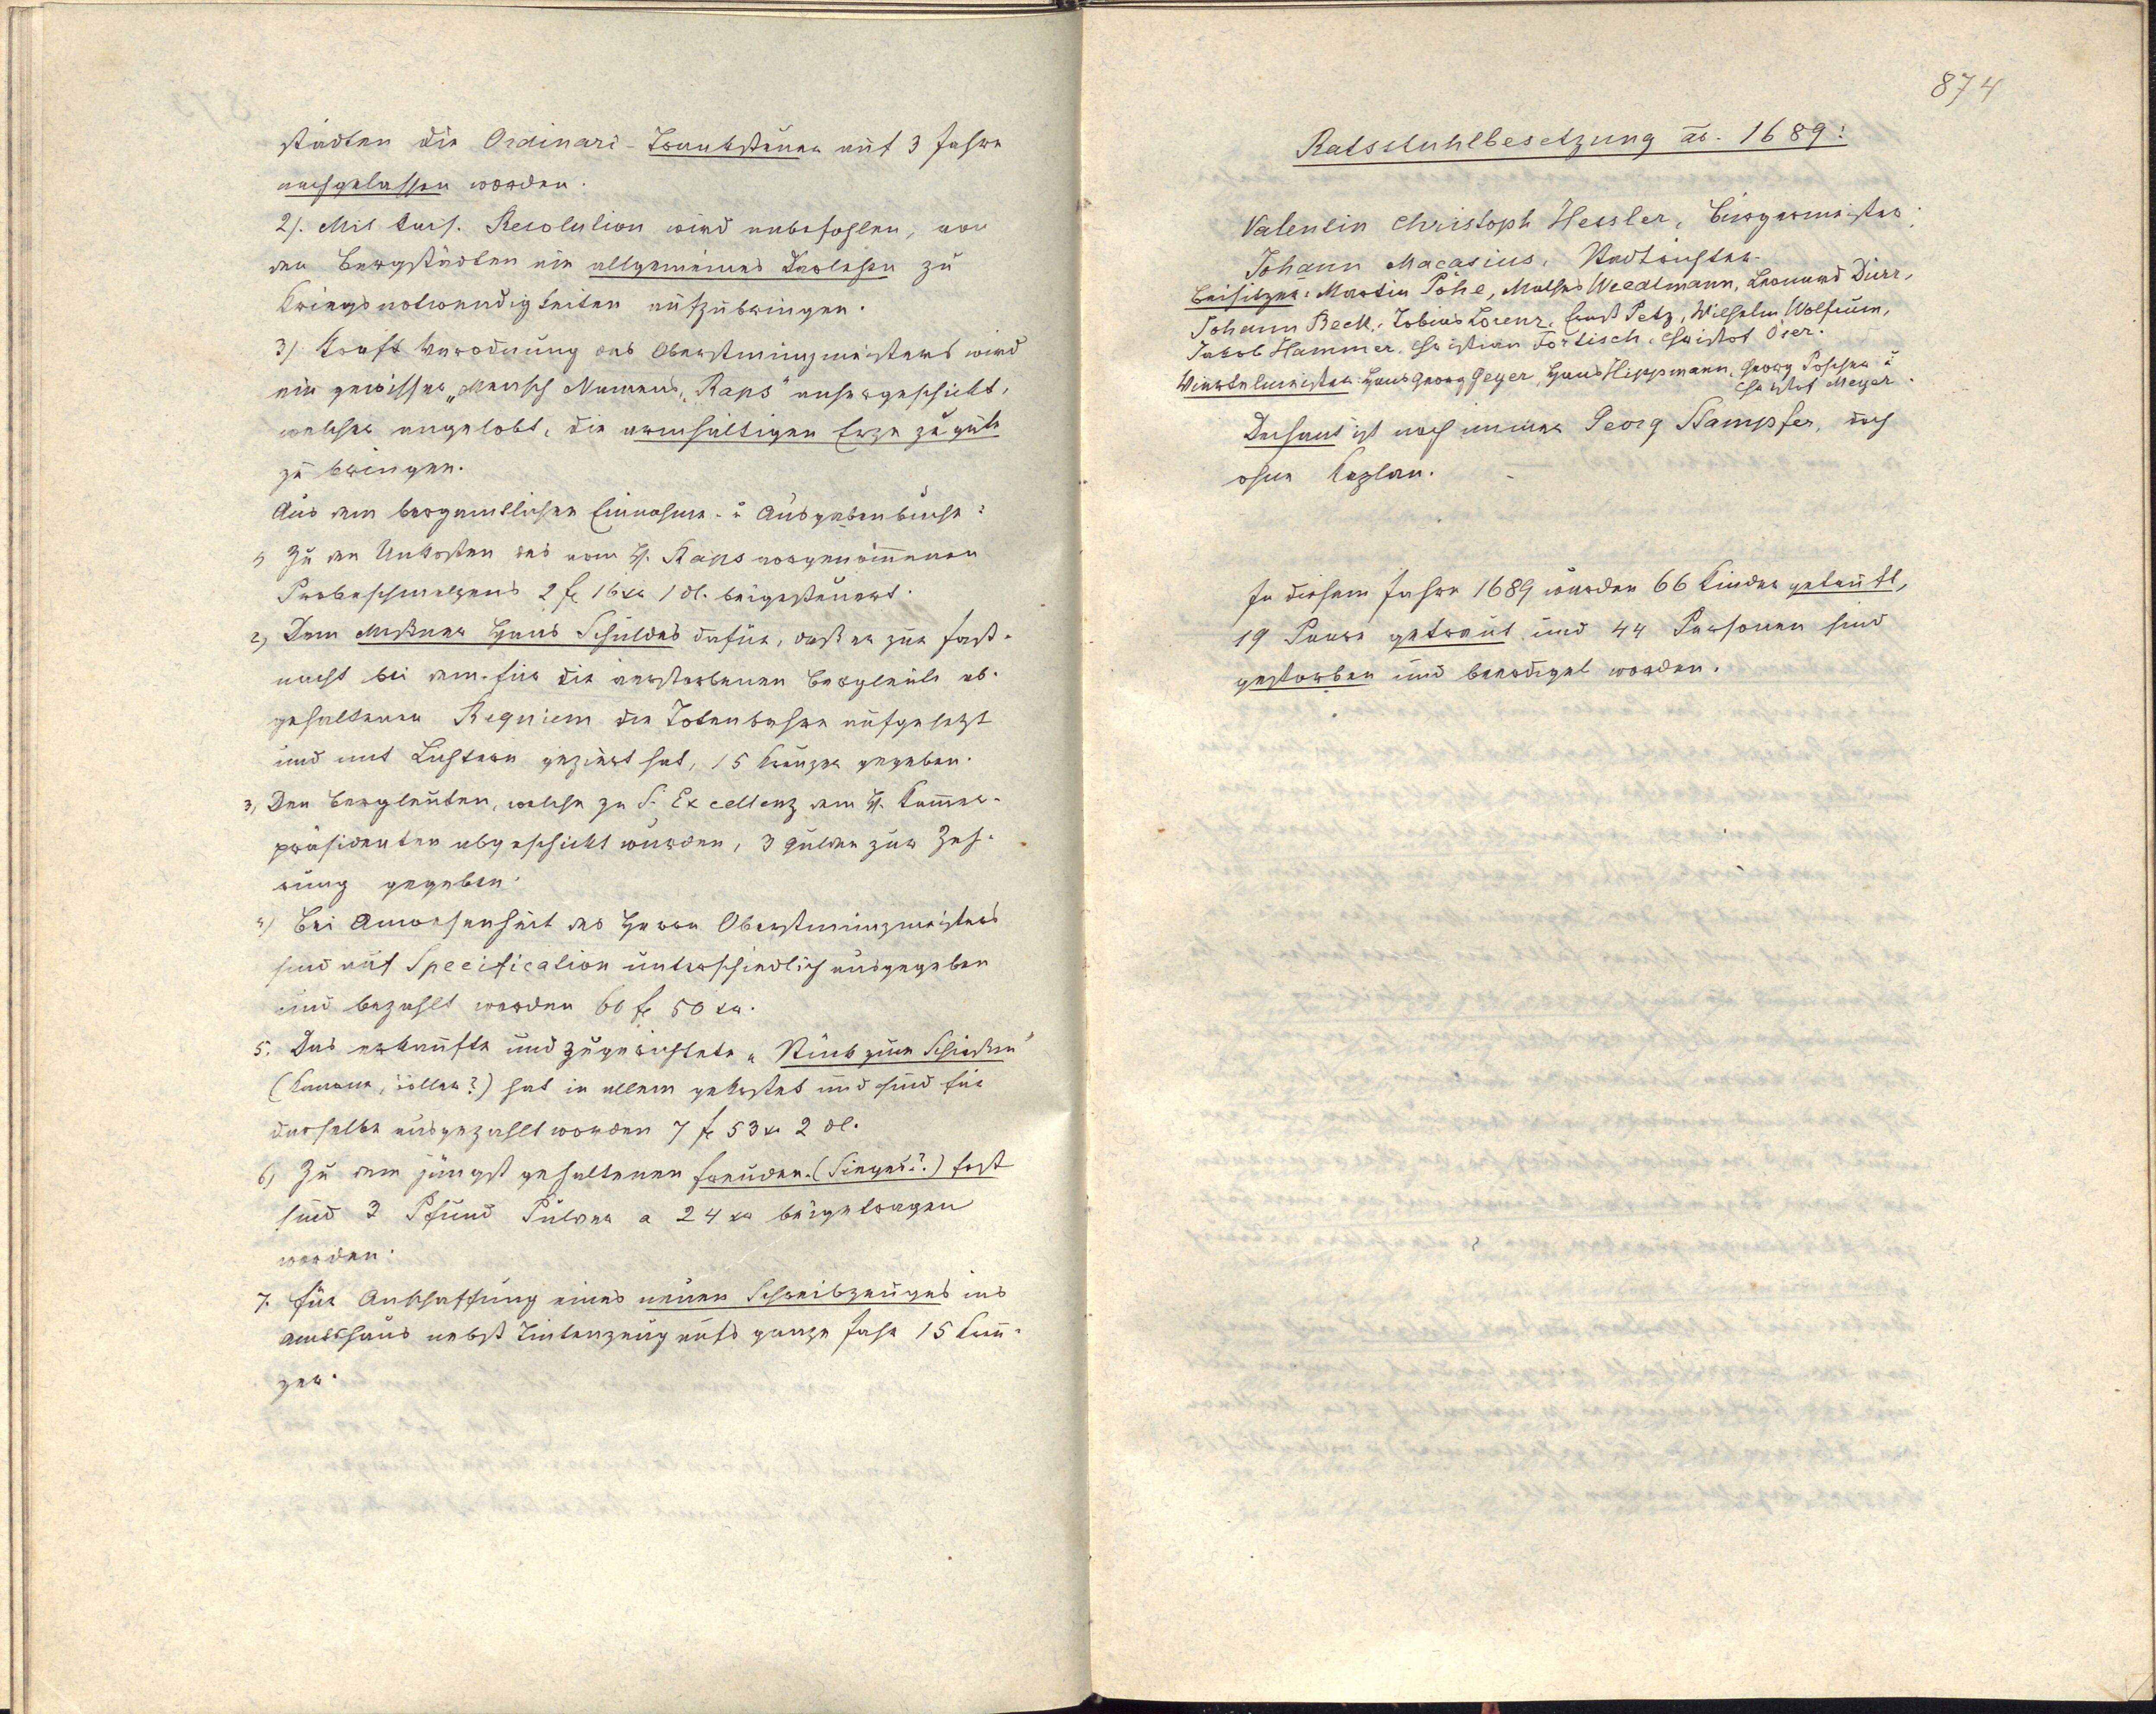 städten die Ordinari-Tranksteuer auf 3 Jahre
nachgelassen worden.
2). Mit kais. Resolution wird anbefohlen, von
den Bergstädten ein allgemeines Darlehen zu
Kriegsnotwendigkeiten aufzubringen.
3) Kraft Verordnung des Oberstmünzmeisters wird
ein gewisser „Mensch Namens „Raps" anhergeschickt,
welcher angelobt, die armhältigen Erze zu gute
zu bringen.
Aus dem bergamtlichen Einnahme- u Ausgabenbuche:
1) Zu den Unkosten des vom H. Raps vorgenommenen
Probeschmelzens 2 fl 16 xr 1 dl. beigesteuert.
2) Dem Meßner Hans Schuldes dafür, daß er zur Fast-
nacht bei dem für die verstorbenen Bergleute ab-
gehaltenen Requiem die Totenbahre aufgesetzt
und mit Lichtern geziert hat, 15 Kreuzer gegeben.
3) Den Bergleuten, welche zu S. Excellenz dem H. Kammer-
präsidenten abgeschickt wurden, 3 Gulden zur Zeh-
rung gegeben.
4) Bei Anwesenheit des Herrn Oberstmünzmeisters
sind auf Specification unterschiedlich ausgegeben
und bezahlt worden 60 fl 50 xr.
5. Das erkaufte und zugerichtete „Stück zum Schießen"
(Kanone, Böller?) hat in allem gekostet und sind für
dasselbe ausgezahlt worden 7 fl 53 xr 2 dl.
6) Zu dem jüngst gehaltenen Freuden-(Sieges?) fest
sind 3 Pfund Pulver a 24 xr beigetragen
worden.
7. Für Anschaffung eines neuen Schreibzeuges ins
Amtshaus nebst Tintenzeug aufs ganze Jahr 15 Kreu-
zer.
874
Ratsstuhlbesetzung ao. 1689:
Valentin Christoph Hessler, Bürgermeister.
Johann Macasius, Stadtrichter.
Beisitzer: Martin Pöhe, Mathes Weedlmann, Leonard Dürr,
Johann Beck, Tobias Lorenz, Ernst Petz, Wilhelm Wolfrum,
Jakob Hammer, Christian Förtisch, Christof Öser.
Viertelmeister: Hans Georg Geyer, Hans Hippmann, Georg Poscher u
Christof Meyer.
Dechant ist noch immer Georg Stampfer, doch
ohne Kaplan.
In diesem Jahre 1689 wurden 66 Kinder getauft,
19 Paare getraut und 44 Personen sind
gestorben und beerdiget worden.